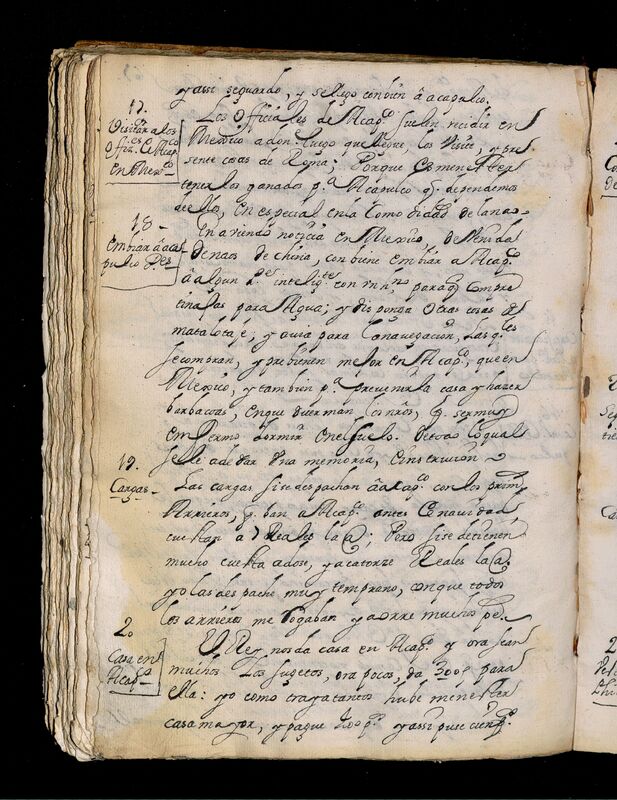 y assi seguardo, y se llego con bien â acapulco.
17.
Visitar a los
Offiz.es de Acap.
en Mex.co
Los Officiales de Acap.co suelen recidir en
Mexico a donde luego que llegue, los visite, y pre
sente cosas de Roma; Porque es menester
tenerlos ganados p.a Acapulco q. dependemos
de ellos, en especial en la Comodidad de la nao.
18 -
embiar â aca
pulco
En aviendo noticia en Mexico, de venida
de naos de china, conbiene embiar a Acap.co
â algun intelig.te con un h.no para q compre
tinajas para Agua; y disponga otras cosas de
matalotaje, y avio para la navegacion, las q.les
se compran, y previenen mejor en Acap.co, que en
Mexico, y tambien p.a prevenir la casa y hazer
barbacoas, en que duerman los nros, q. ser muy
enfermo dormir en el suelo. De todo lo qual
se lle a de dar una memoria, e instruccion
19.
Cargas.
Las cargas si se despachan â acap.co con los prim.
Arrieros, q ban a Acap.co antes de navidad
cuestan a 7 Reales la @; Pero si se detienen
mucho cuesta a dose, y a catorze Reales la @.
yo las despaché muy temprano, con que todos
los arrieros me rogaban y aorré muchos p.s
20
Casa en
Acap.co
El Rey nos da casa en Acap.co y ora sean
muchos los sugetos, ora pocos, da 300 p para
ella: yo como traya tantos hube menester
casa mayor, y pague 400 p.s y assi puse cien p.s